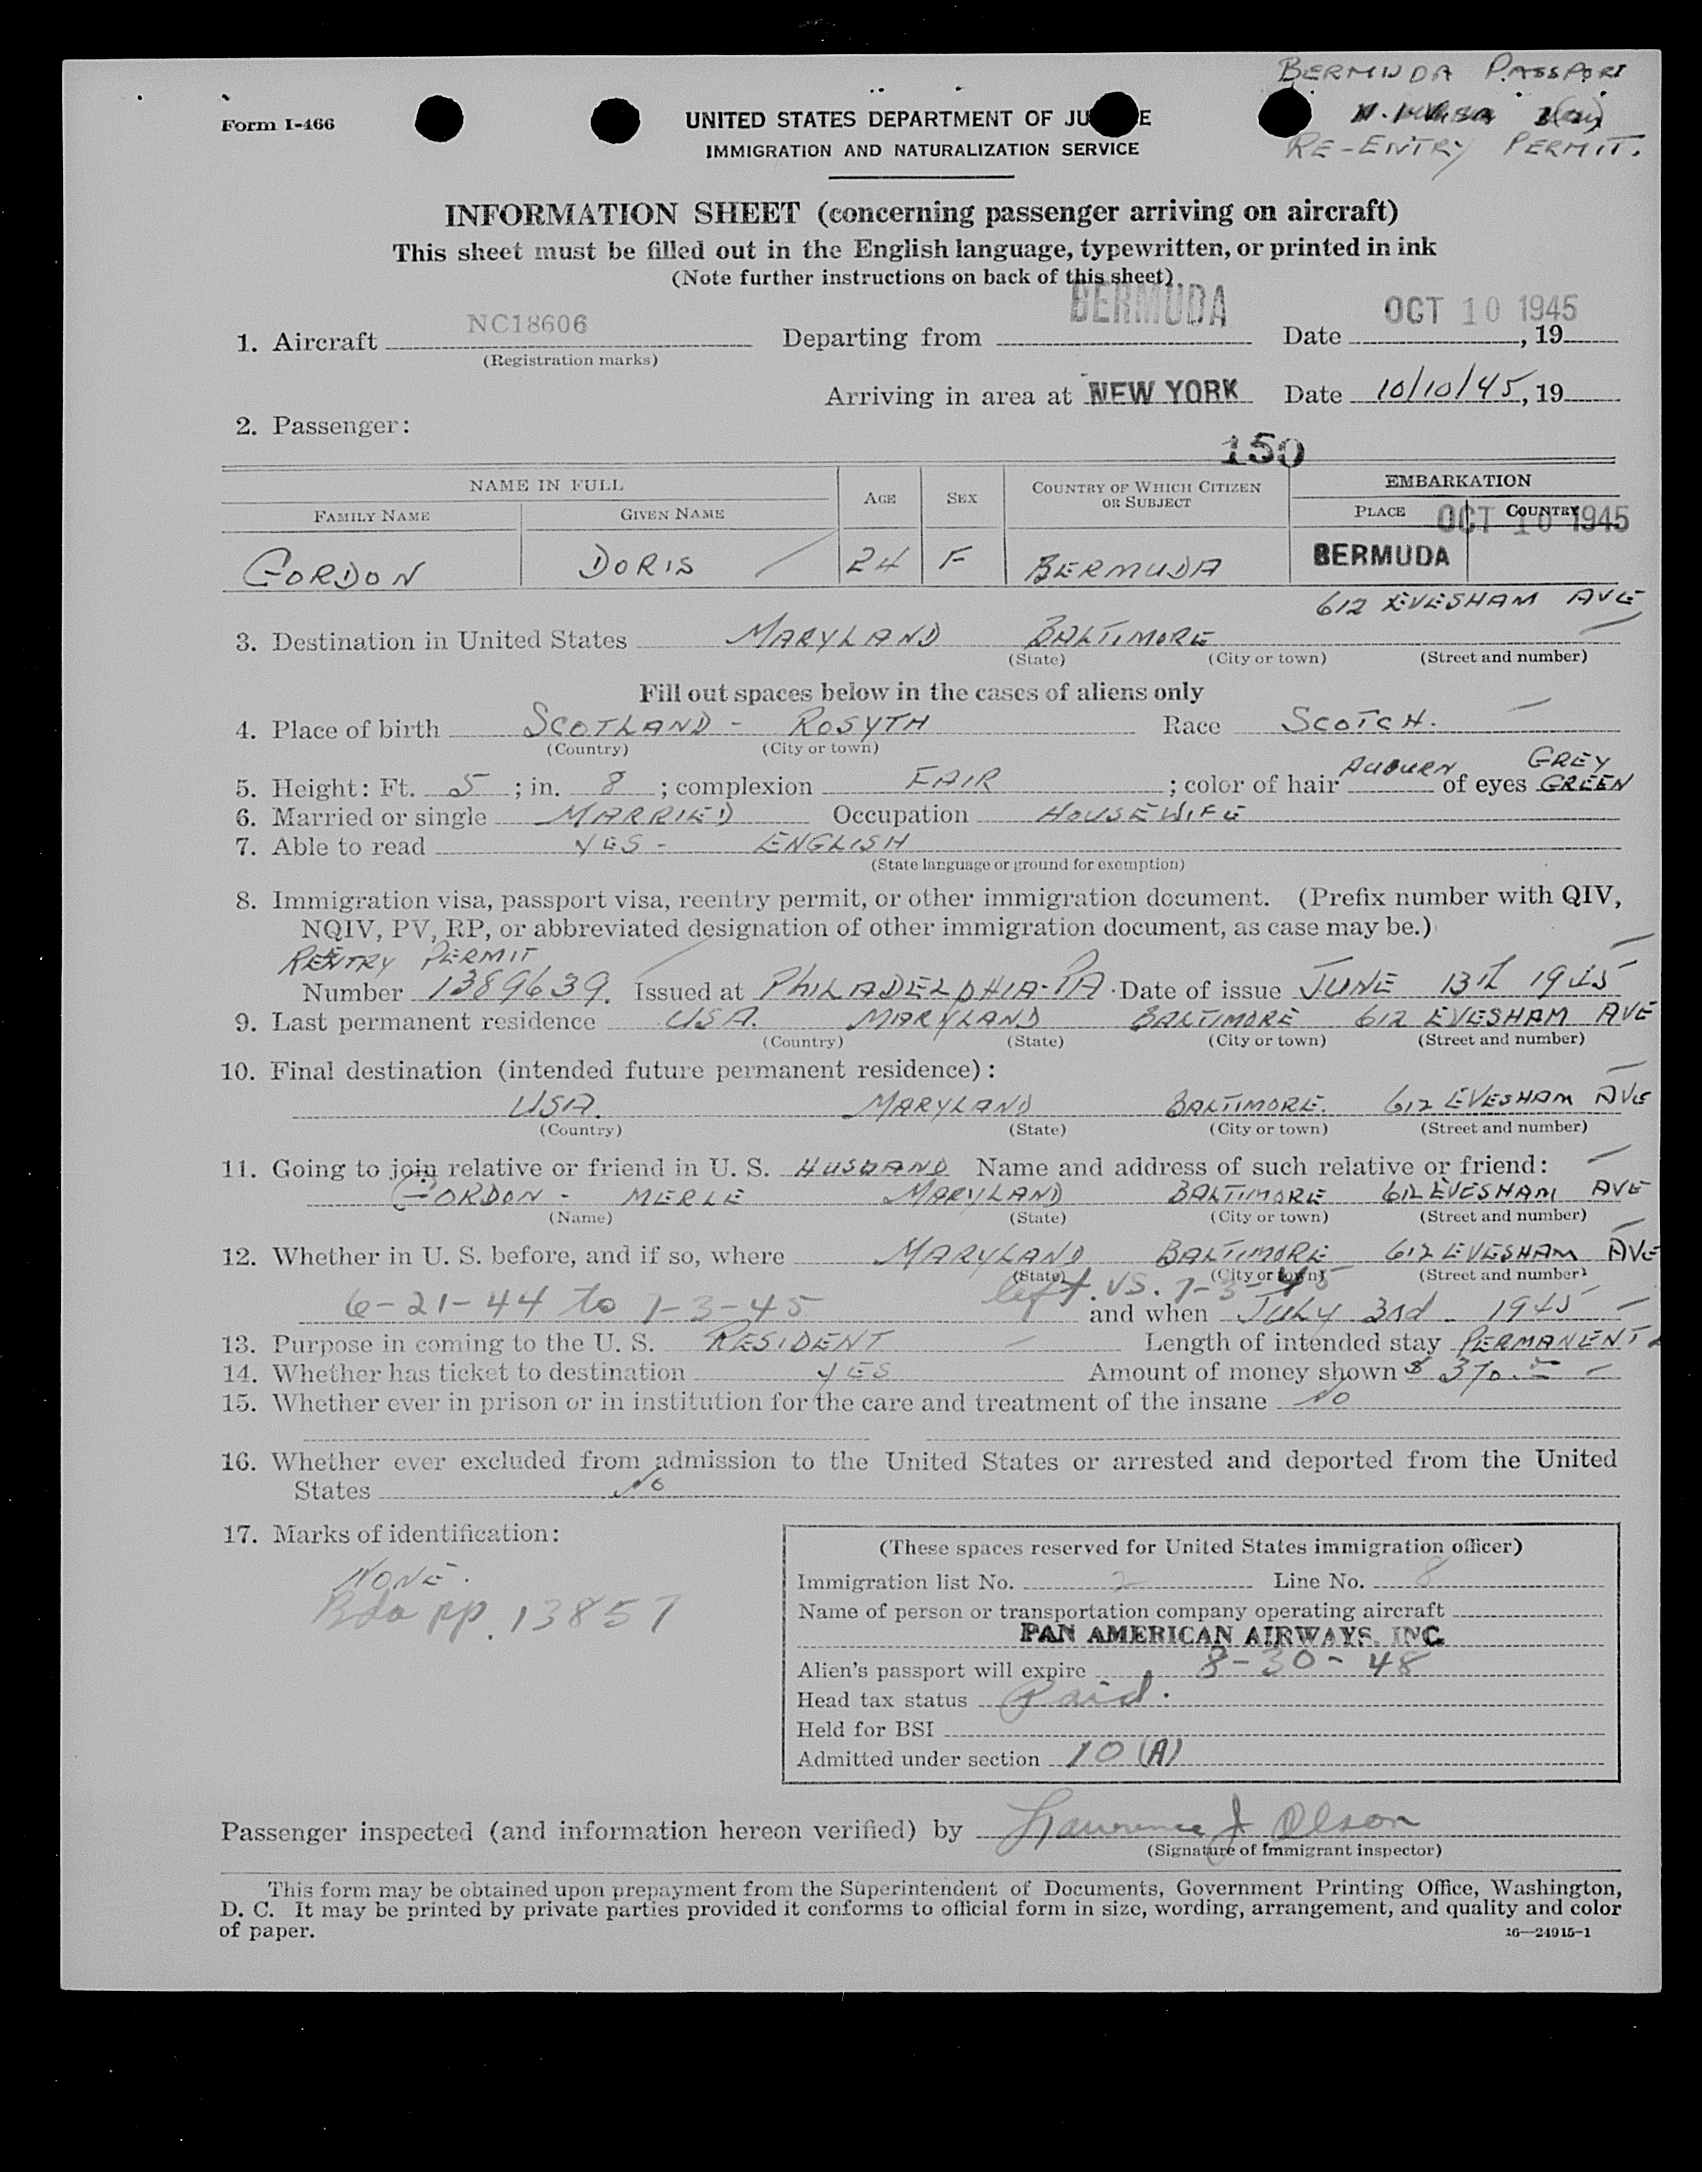 BERMUDA PASSPORT
RE-ENTRY PERMIT.
Form I-466
UNITED STATES DEPARTMENT OF JU E
IMMIGRATION AND NATURALIZATION SERVICE
INFORMATION SHEET (concerning passenger arriving on aircraft)
This sheet must be filled out in the English language, typewritten, or printed in ink
(Note further instructions on back of this sheet)
1. Aircraft NC18606 Departing from BERMUDA Date OCT 10 1945, 19
(Registration marks)
Arriving in area at NEW YORK Date 10/10/45, 19
2. Passenger:
150
NAME IN FULL AGE SEX COUNTRY OF WHICH CITIZEN OR SUBJECT EMBARKATION
FAMILY NAME GIVEN NAME PLACE COUNTRY
OCT 10 1945
GORDON DORIS 24 F BERMUDA BERMUDA
612 EVESHAM AVE
3. Destination in United States MARYLAND BALTIMORE
(State) (City or town) (Street and number)
Fill out spaces below in the cases of aliens only
4. Place of birth SCOTLAND - ROSYTH Race SCOTCH.
(Country) (City or town)
GREY
5. Height: Ft. 5 ; in. 8 ; complexion FAIR ; color of hair AUBURN of eyes GREEN
6. Married or single MARRIED Occupation HOUSEWIFE
7. Able to read YES - ENGLISH
(State language or ground for exemption)
8. Immigration visa, passport visa, reentry permit, or other immigration document. (Prefix number with QIV,
NQIV, PV, RP, or abbreviated designation of other immigration document, as case may be.)
REENTRY PERMIT
Number 1389639. Issued at PHILADELPHIA-PA. Date of issue JUNE 13th 1945
9. Last permanent residence USA. MARYLAND BALTIMORE 612 EVESHAM AVE
(Country) (State) (City or town) (Street and number)
10. Final destination (intended future permanent residence):
USA. MARYLAND BALTIMORE. 612 EVESHAM AVE
(Country) (State) (City or town) (Street and number)
11. Going to join relative or friend in U. S. HUSBAND Name and address of such relative or friend:
GORDON - MERLE MARYLAND BALTIMORE 612 EVESHAM AVE
(Name) (State) (City or town) (Street and number)
12. Whether in U. S. before, and if so, where MARYLAND BALTIMORE 612 EVESHAM AVE
(State) (City or town) (Street and number)
left. US. 7-3-45
6-21-44 to 7-3-45 and when JULY 3rd 1945
13. Purpose in coming to the U. S. RESIDENT Length of intended stay PERMANENT
14. Whether has ticket to destination YES Amount of money shown $ 370.
15. Whether ever in prison or in institution for the care and treatment of the insane NO
16. Whether ever excluded from admission to the United States or arrested and deported from the United
States NO
17. Marks of identification:
NONE.
Bda pp. 13857
(These spaces reserved for United States immigration officer)
Immigration list No. 2 Line No. 8
Name of person or transportation company operating aircraft
PAN AMERICAN AIRWAYS, INC.
Alien's passport will expire 8-30-48
Head tax status Paid.
Held for BSI
Admitted under section 10 (A)
Passenger inspected (and information hereon verified) by Lawrence J Olson
(Signature of immigrant inspector)
This form may be obtained upon prepayment from the Superintendent of Documents, Government Printing Office, Washington,
D. C. It may be printed by private parties provided it conforms to official form in size, wording, arrangement, and quality and color
of paper.
16—24915-1